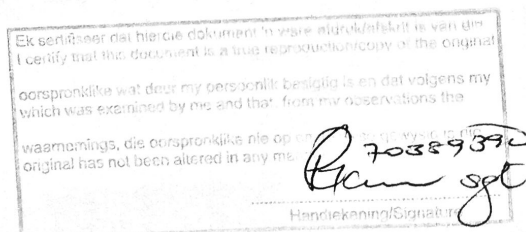 Ek sertifiseer dat hierdie dokument 'n ware afdruk/afskrif is van die
I certify that this document is a true reproduction/copy of the original
oorspronklike wat deur my persoonlik besigtig is en dat volgens my
which was examined by me and that, from my observations the
waarnemings, die oorspronklike nie op
original has not been altered in any
70389390
sgt
Handtekening/Signature